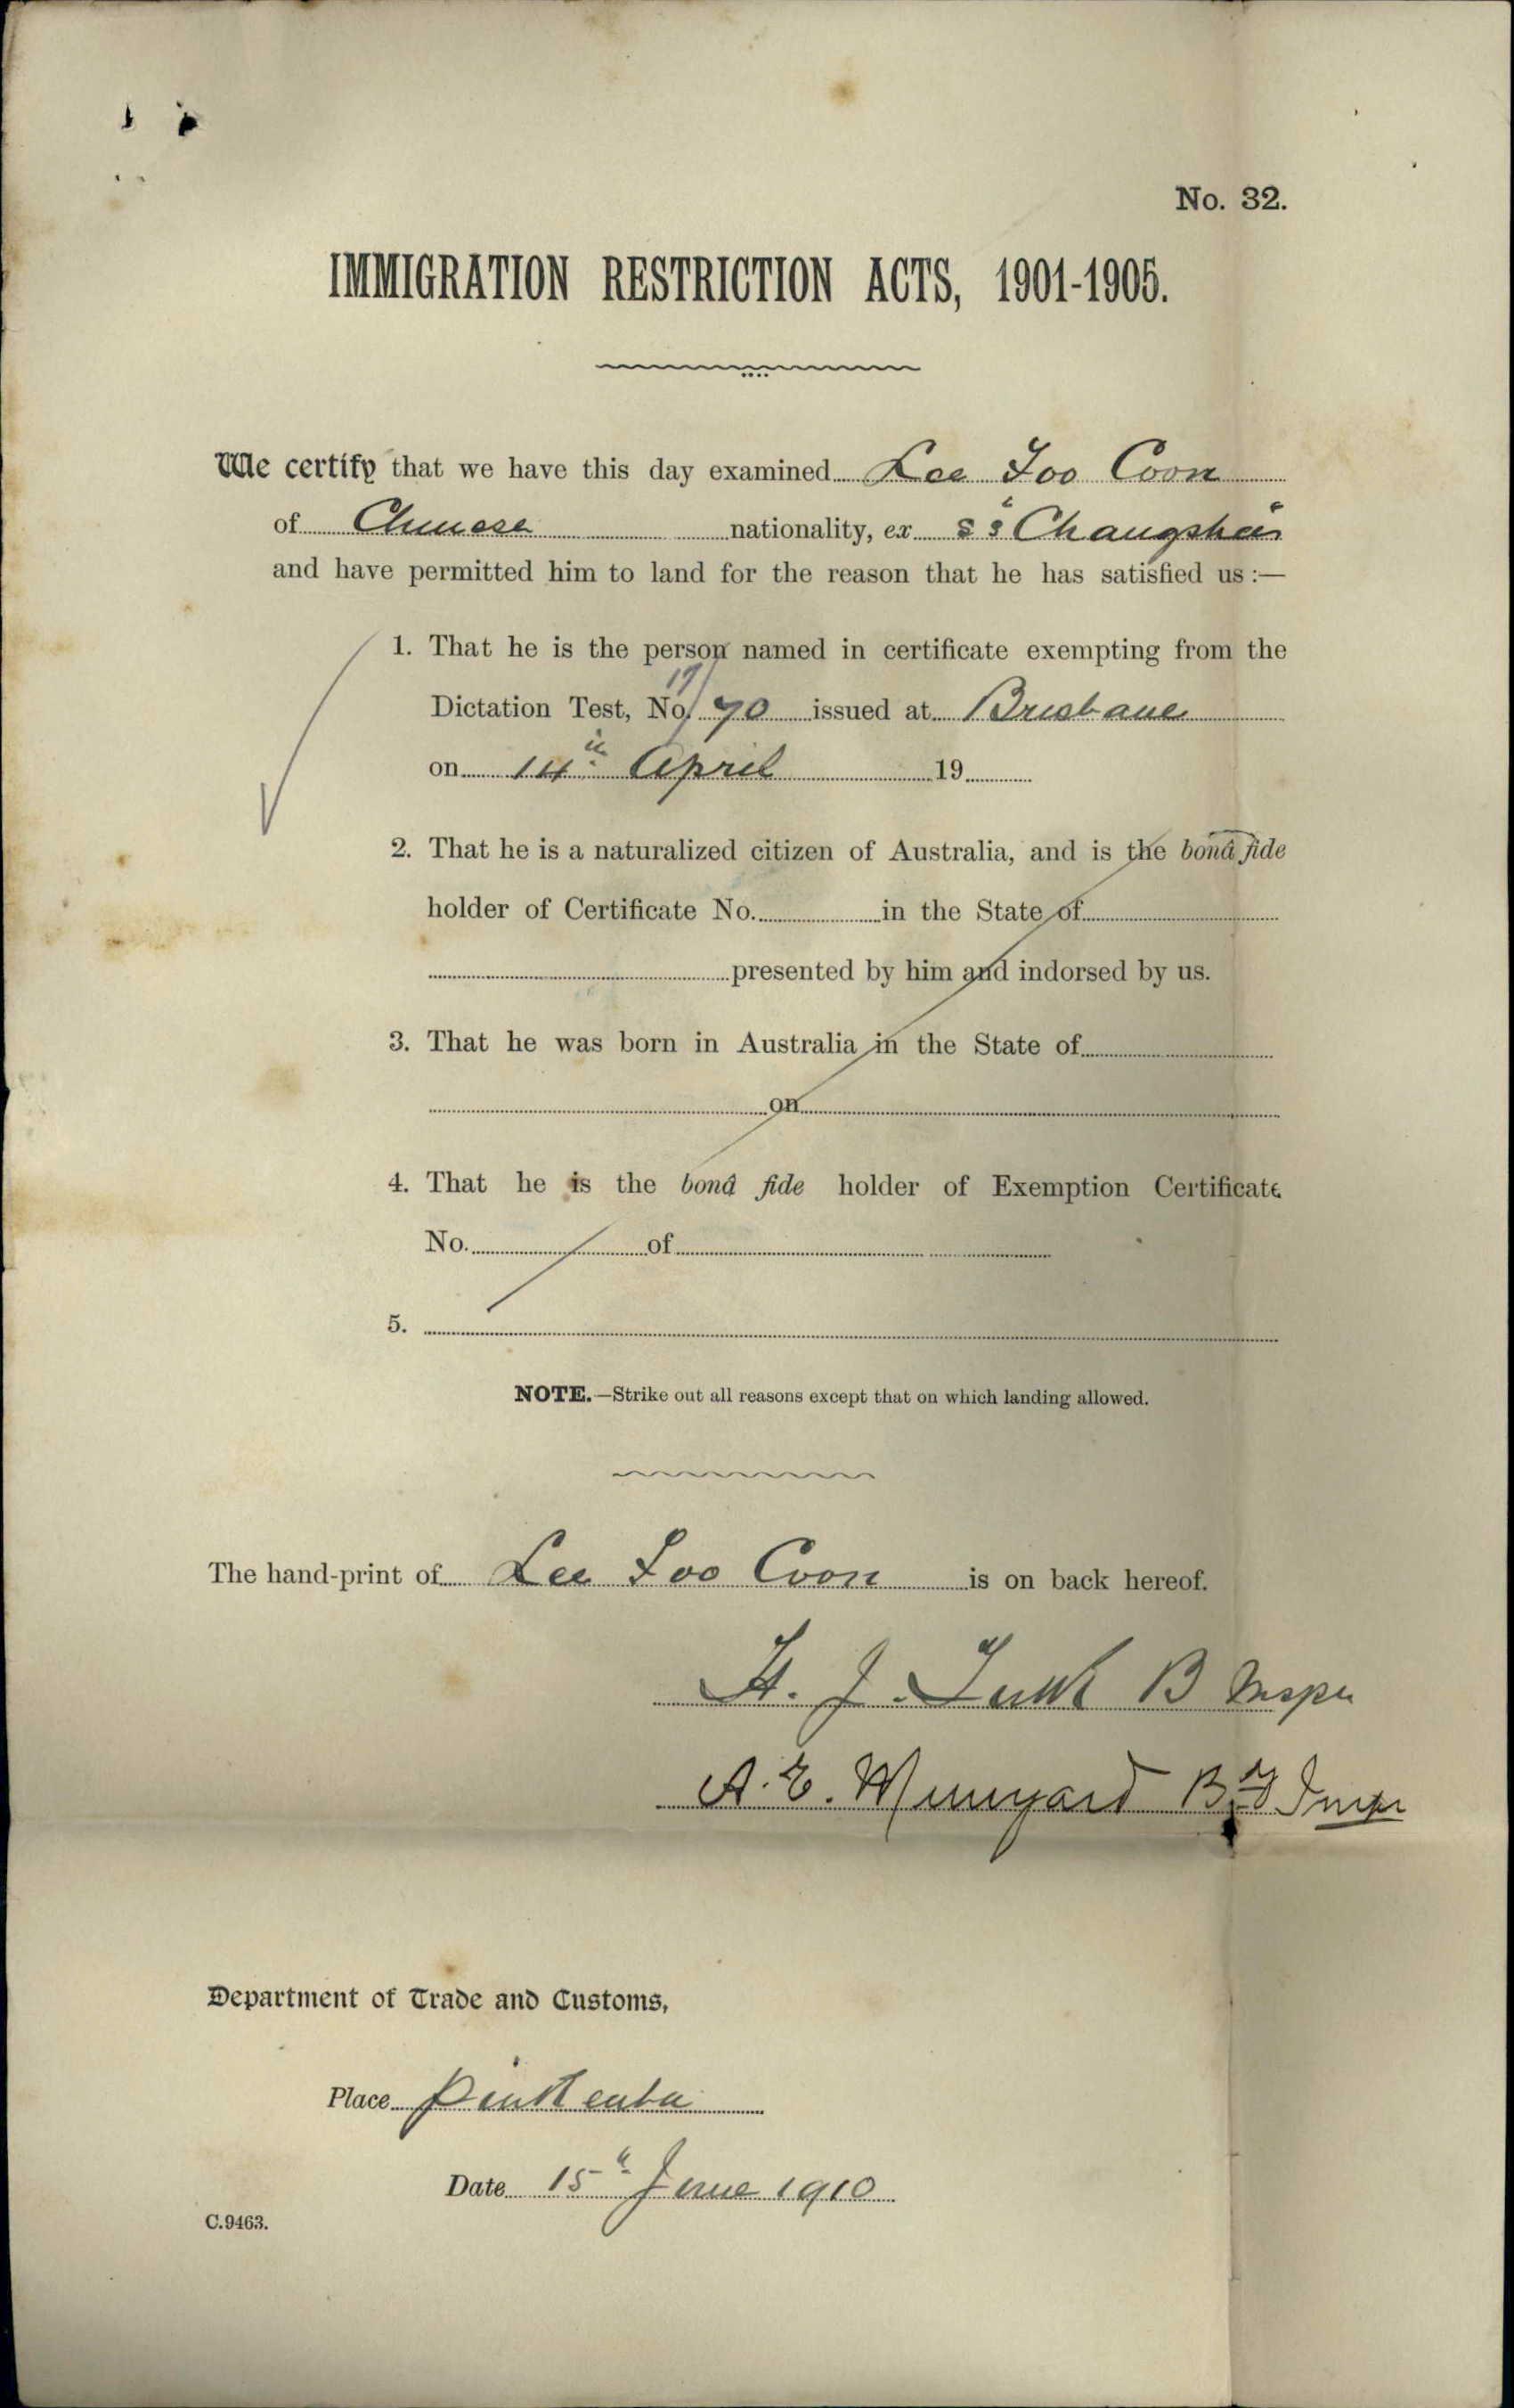 No. 32.
IMMIGRATION RESTRICTION ACTS, 1901-1905.
We certify that we have this day examined Lee Foo Coon
of Chinese nationality, ex SS Changsha
and have permitted him to land for the reason that he has satisfied us :—
1. That he is the person named in certificate exempting from the
Dictation Test, No. 70 issued at Brisbane
on 14th April 19
2. That he is a naturalized citizen of Australia, and is the bonâ fide
holder of Certificate No. in the State of
presented by him and indorsed by us.
3. That he was born in Australia in the State of
on
4. That he is the bonâ fide holder of Exemption Certificate
No. of
5.
NOTE.—Strike out all reasons except that on which landing allowed.
The hand-print of Lee Foo Coon is on back hereof.
H. J. B Inspr
A. E. Munyard Bdg Inspr
Department of Trade and Customs,
Place Pinkenba
Date 15th June 1910
C.9463.